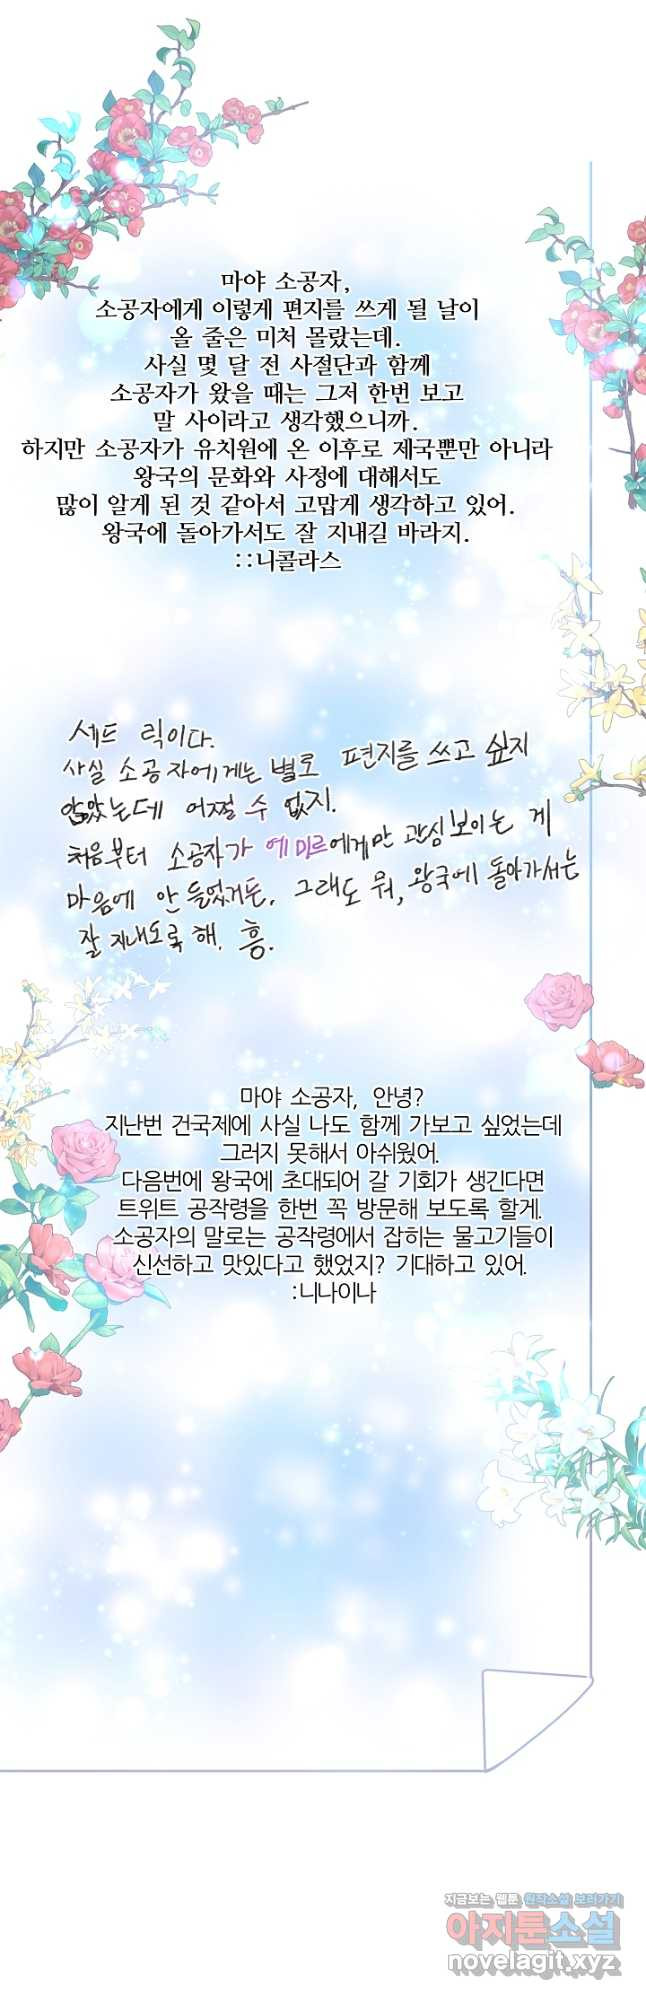 마야 소공자,
소공자에게 이렇게 편지를 쓰게 될 날이
올 줄은 미처 몰랐는데.
사실 몇 달 전 사절단과 함께
소공자가 왔을 때는 그저 한번 보고
말 사이라고 생각했으니까.
하지만 소공자가 유치원에 온 이후로 제국뿐만 아니라
왕국의 문화와 사정에 대해서도
많이 알게 된 것 같아서 고맙게 생각하고 있어.
왕국에 돌아가서도 잘 지내길 바라지.
::니콜라스
세드릭이다.
사실 소공자에게는 별로 편지를 쓰고 싶지
않았는데 어쩔 수 없지.
처음부터 소공자가 에미르에게만 관심보이는 게
마음에 안 들었거든. 그래도 뭐, 왕국에 돌아가서는
잘 지내도록 해. 흥.
마야 소공자, 안녕?
지난번 건국제에 사실 나도 함께 가보고 싶었는데
그러지 못해서 아쉬웠어.
다음번에 왕국에 초대되어 갈 기회가 생긴다면
트위트 공작령을 한번 꼭 방문해 보도록 할게.
소공자의 말로는 공작령에서 잡히는 물고기들이
신선하고 맛있다고 했었지? 기대하고 있어.
:니나이나
지금보는 웹툰 원작소설 보러가기
아지툰소설
novelagit.xyz